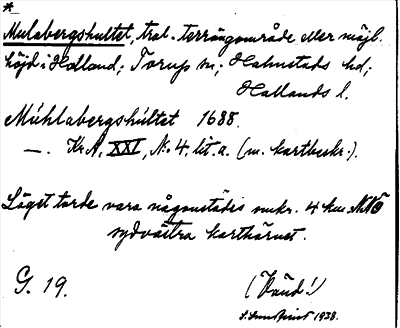 *
Mulabergshultet, trol. terrängområde eller möjl.
höjd i Halland; Torup sn; Halmstads hd;
Hallands l.
Mühlabergshültet 1688.
—. Kr.A. XXI, No 4. lit. a. (m. kartbeskr.).
Läget torde vara någonstädes omkr. 4 km NNÖ
sydvästra karthörnet.
G. 19.
(Vänd!)
1938.